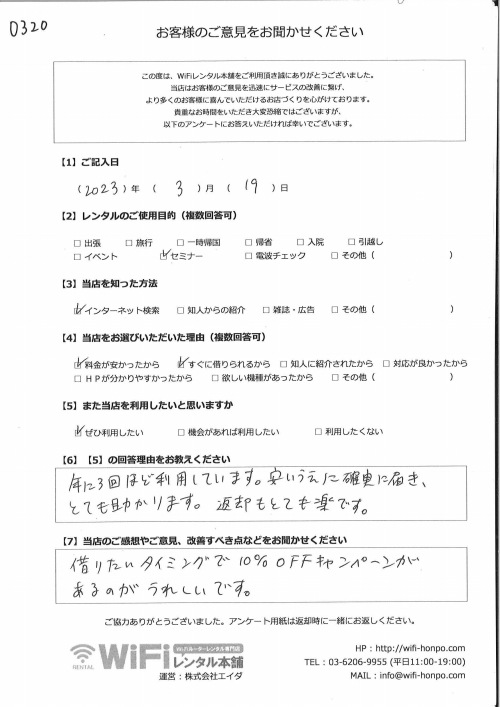 0320
お客様のご意見をお聞かせください
この度は、WiFiレンタル本舗をご利用頂き誠にありがとうございました。
当店はお客様のご意見を迅速にサービスの改善に繋げ、
より多くのお客様に喜んでいただけるお店づくりを心がけております。
貴重なお時間をいただき大変恐縮ではございますが、
以下のアンケートにお答えいただければ幸いでございます。
【1】ご記入日
(2023)年 ( 3 )月 ( 19 )日
【2】レンタルのご使用目的(複数回答可)
□ 出張 □ 旅行 □ 一時帰国 □ 帰省 □ 入院 □ 引越し
□ イベント ☑ セミナー □ 電波チェック □ その他 ( )
【3】当店を知った方法
☑ インターネット検索 □ 知人からの紹介 □ 雑誌・広告 □ その他 ( )
【4】当店をお選びいただいた理由(複数回答可)
☑ 料金が安かったから ☑ すぐに借りられるから □ 知人に紹介されたから □ 対応が良かったから
□ HPが分かりやすかったから □ 欲しい機種があったから □ その他 ( )
【5】また当店を利用したいと思いますか
☑ ぜひ利用したい □ 機会があれば利用したい □ 利用したくない
【6】【5】の回答理由をお教えください
年に3回ほど利用しています。安いうえに確実に届き、
とても助かります。返却もとても楽です。
【7】当店のご感想やご意見、改善すべき点などをお聞かせください
借りたいタイミングで10%OFFキャンペーンが
あるのがうれしいです。
ご協力ありがとうございました。アンケート用紙は返却時に一緒にお返しください。
RENTAL WiFi WiFiルーターレンタル専門店
レンタル本舗
運営:株式会社エイダ
HP:http://wifi-honpo.com
TEL:03-6206-9955 (平日11:00-19:00)
MAIL:info@wifi-honpo.com